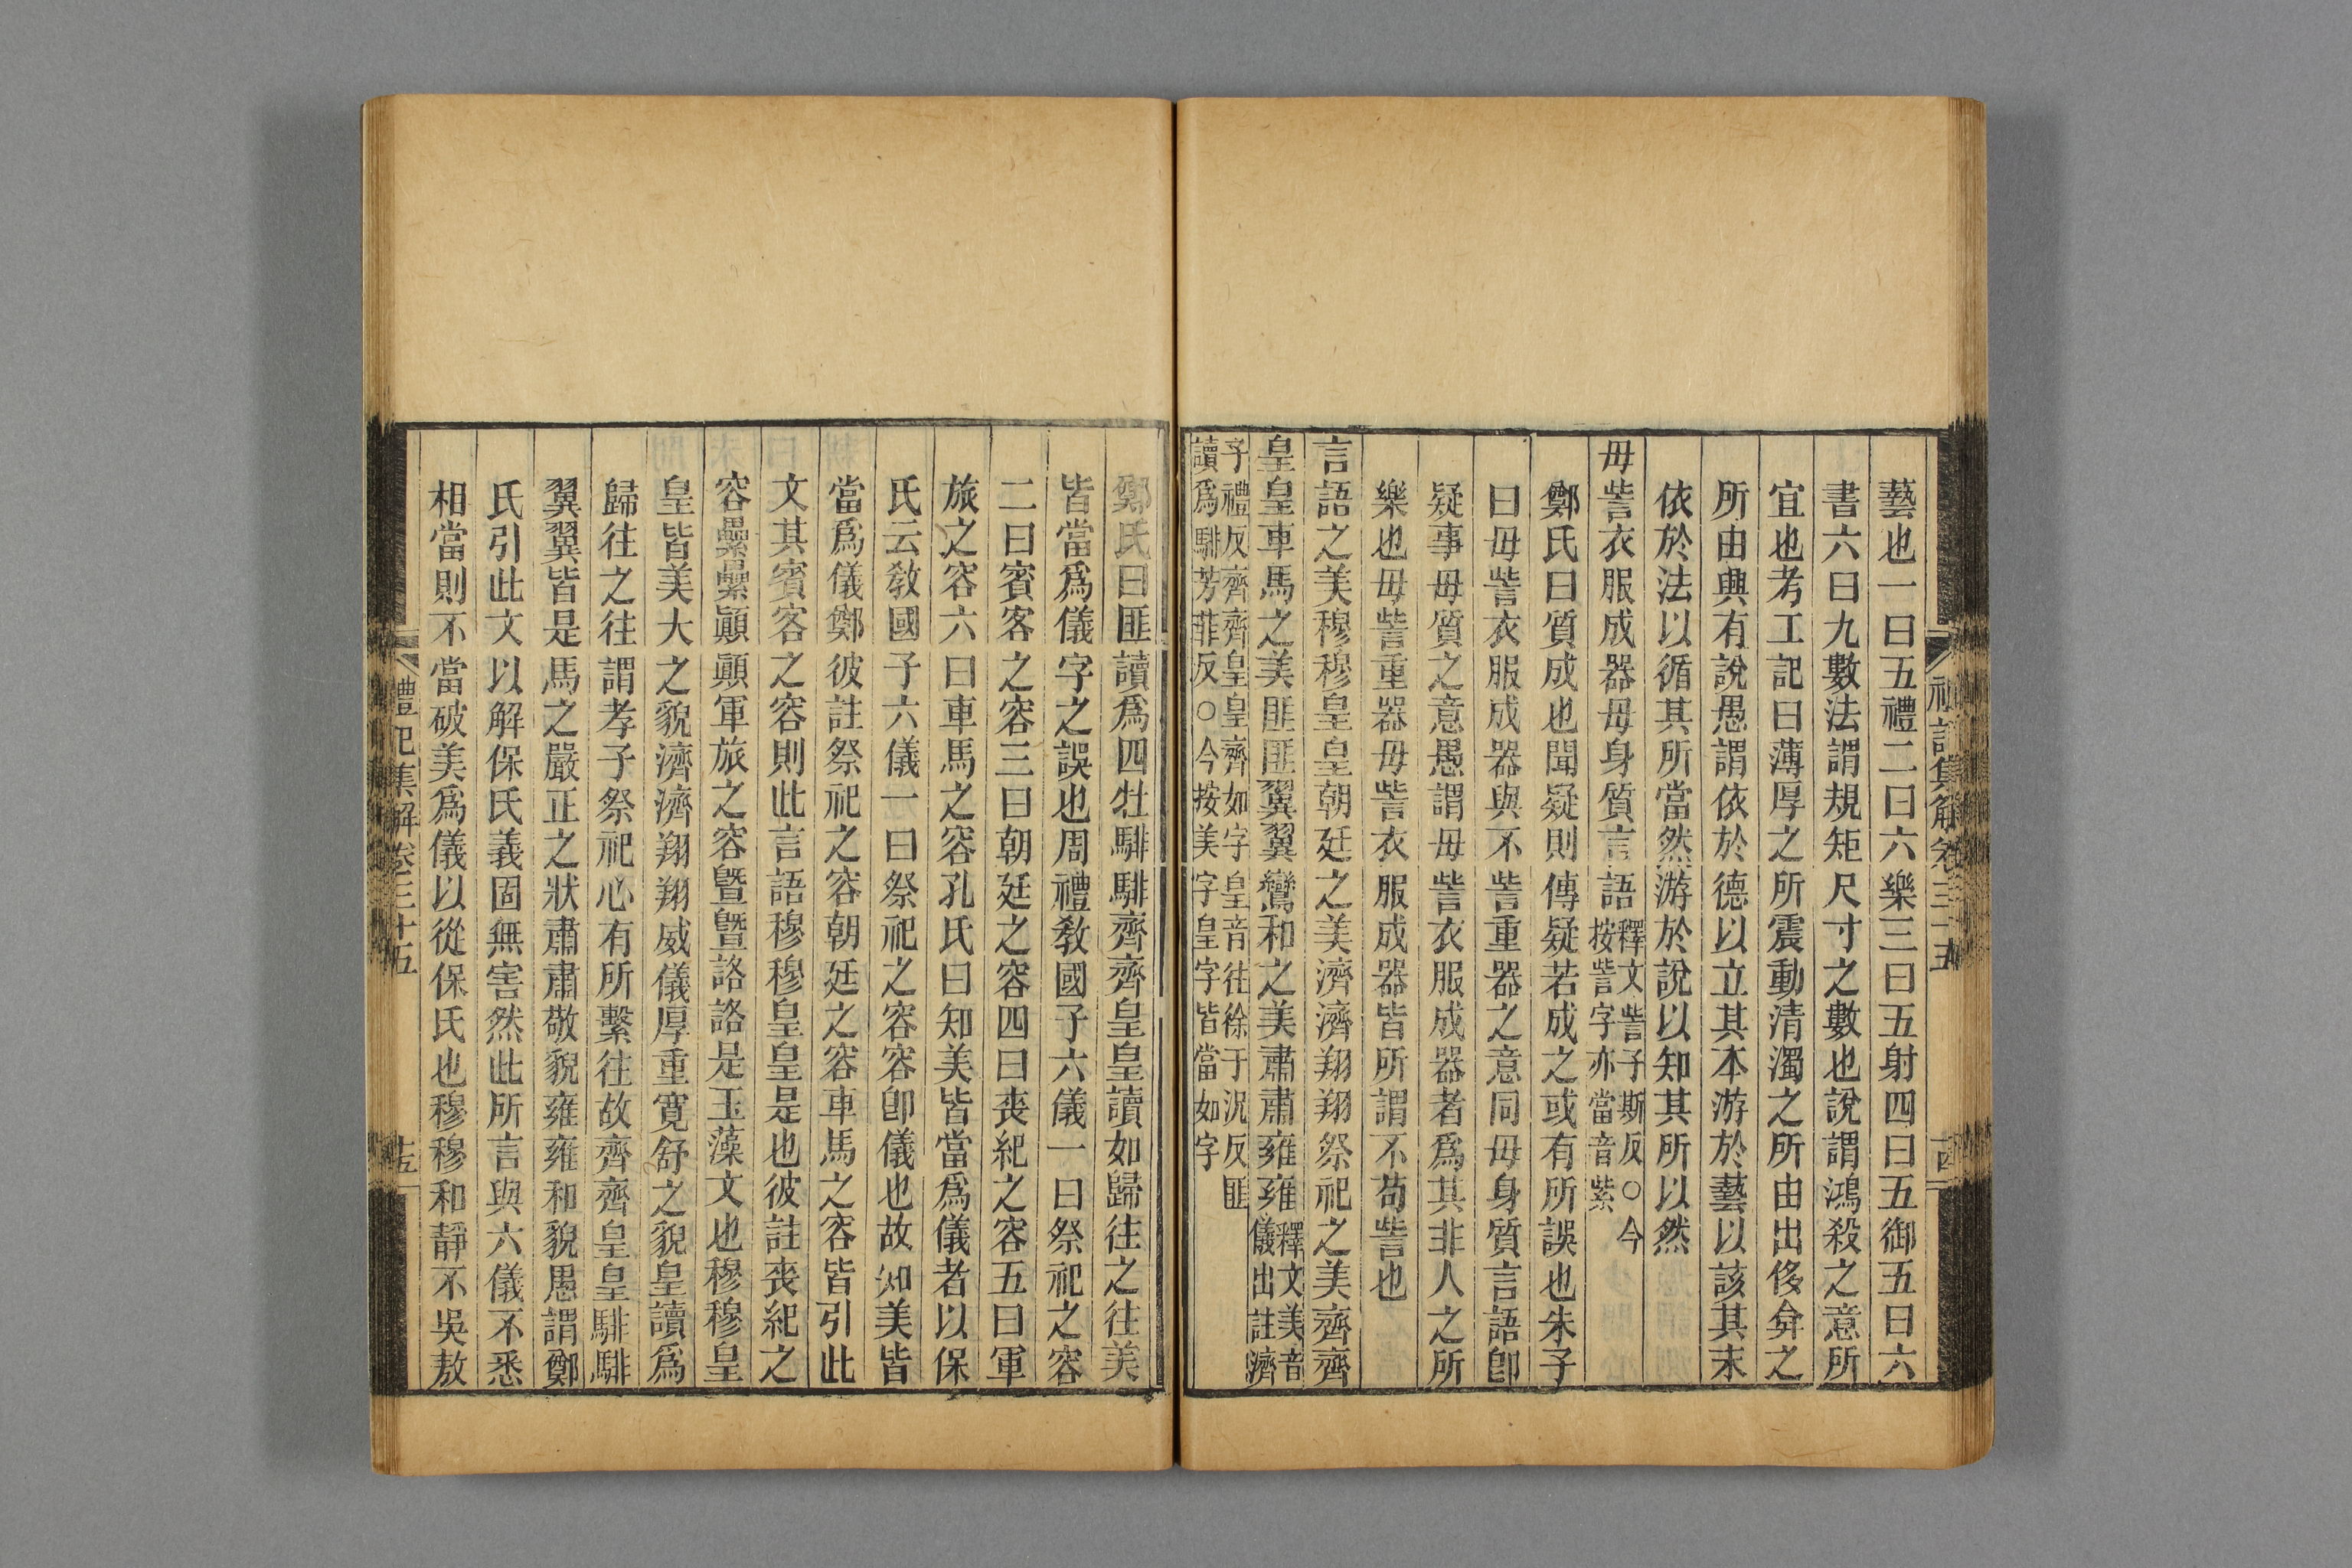 藝也一曰五禮二曰六樂三曰五射四曰五御五曰六
書六曰九數法謂規矩尺寸之數也說謂鴻殺之意所
宜也考工記曰薄厚之所震動清濁之所由出侈弇之
所由興有說愚謂依於德以立其本游於藝以該其末
依於法以循其所當然游於說以知其所以然
毋訾衣服成器毋身質言語釋文訾子斯反○今
按訾字亦當音紫
鄭氏曰質成也聞疑則傳疑若成之或有所誤也朱子
曰毋訾衣服成器與不訾重器之意同毋身質言語卽
疑事毋質之意愚謂毋訾衣服成器者爲其非人之所
樂也毋訾重器毋訾衣服成器皆所謂不苟訾也
言語之美穆穆皇皇朝廷之美濟濟翔翔祭祀之美齊齊
皇皇車馬之美匪匪翼翼鸞和之美肅肅雍雍釋文美音
儀出註濟
子禮反齊齊皇皇齊如字皇音往徐于況反匪
讀爲騑芳菲反○今按美字皇字皆當如字
禮記集解卷三十五
十四
鄭氏曰匪讀爲四牡騑騑齊齊皇皇讀如歸往之往美
皆當爲儀字之誤也周禮敎國子六儀一曰祭祀之容
二曰賓客之容三曰朝廷之容四曰喪紀之容五曰軍
旅之容六曰車馬之容孔氏曰知美皆當爲儀者以保
氏云敎國子六儀一曰祭祀之容容卽儀也故知美皆
當爲儀鄭彼註祭祀之容朝廷之容車馬之容皆引此
文其賓客之容則此言語穆穆皇皇是也彼註喪紀之
容纍纍顚顚軍旅之容曁曁詻詻是玉藻文也穆穆皇
皇皆美大之貌濟濟翔翔威儀厚重寬舒之貌皇讀爲
歸往之往謂孝子祭祀心有所繫往故齊齊皇皇騑騑
翼翼皆是馬之嚴正之狀肅肅敬貌雍雍和貌愚謂鄭
氏引此文以解保氏義固無害然此所言與六儀不悉
相當則不當破美爲儀以從保氏也穆穆和靜不吳敖
禮記集解卷三十五
十五